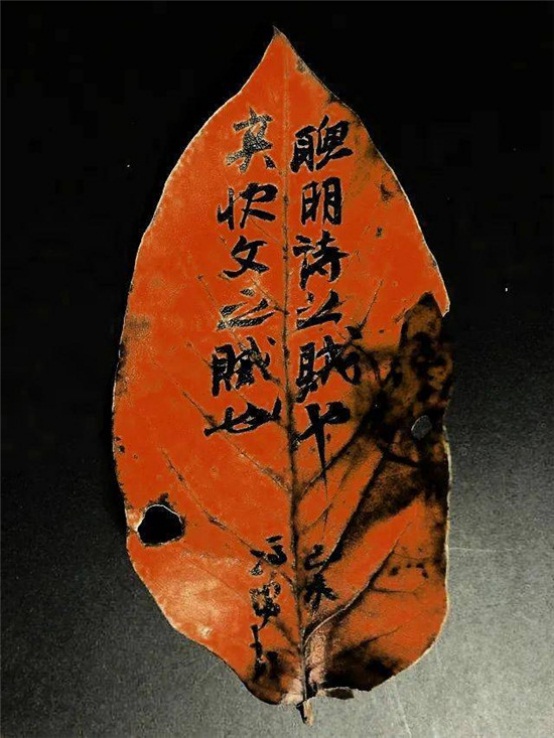 聰明詩之賊也
爽快文之賊也